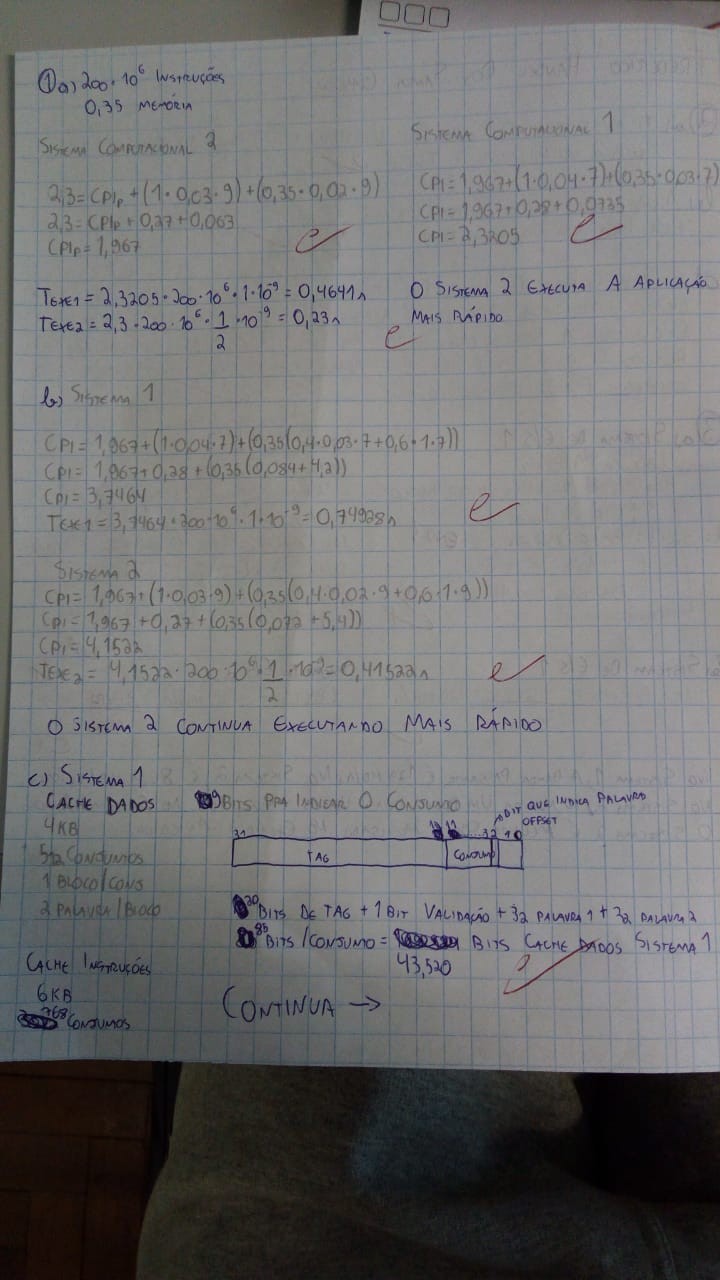 ① a) 200 · 10⁶ INSTRUÇÕES
0,35 MEMÓRIA
SISTEMA COMPUTACIONAL 2
2,3 = CPIp + (1 · 0,03 · 9) + (0,35 · 0,02 · 9)
2,3 = CPIp + 0,27 + 0,063
CPIp = 1,967
SISTEMA COMPUTACIONAL 1
CPI = 1,967 + (1 · 0,04 · 7) + (0,35 · 0,03 · 7)
CPI = 1,967 + 0,28 + 0,0735
CPI = 2,3205
TEXE1 = 2,3205 · 200 · 10⁶ · 1 · 10⁻⁹ = 0,4641 s
TEXE2 = 2,3 · 200 · 10⁶ · 1/2 · 10⁻⁹ = 0,23 s
O SISTEMA 2 EXECUTA A APLICAÇÃO
MAIS RÁPIDO
b) SISTEMA 1
CPI = 1,967 + (1 · 0,04 · 7) + (0,35 (0,4 · 0,03 · 7 + 0,6 · 1 · 7))
CPI = 1,967 + 0,28 + (0,35 (0,084 + 4,2))
CPI = 3,7464
TEXE1 = 3,7464 · 200 · 10⁶ · 1 · 10⁻⁹ = 0,74928 s
SISTEMA 2
CPI = 1,967 + (1 · 0,03 · 9) + (0,35 (0,4 · 0,02 · 9 + 0,6 · 1 · 9))
CPI = 1,967 + 0,27 + (0,35 (0,072 + 5,4))
CPI = 4,1522
TEXE2 = 4,1522 · 200 · 10⁶ · 1/2 · 10⁻⁹ = 0,41522 s
O SISTEMA 2 CONTINUA EXECUTANDO MAIS RÁPIDO
c) SISTEMA 1
CACHE DADOS
4 KB
512 CONJUNTOS
1 BLOCO / CONJ
2 PALAVRA / BLOCO
9 BITS PRA INDICAR O CONJUNTO
BIT QUE INDICA PALAVRA
OFFSET
31 12 11 3 2 1 0
TAG CONJUNTO
20 BITS DE TAG + 1 BIT VALIDAÇÃO + 32 PALAVRA 1 + 32 PALAVRA 2
85 BITS / CONJUNTO = BITS CACHE DADOS SISTEMA 1
43,520
CACHE INSTRUÇÕES
6 KB
768 CONJUNTOS
CONTINUA →